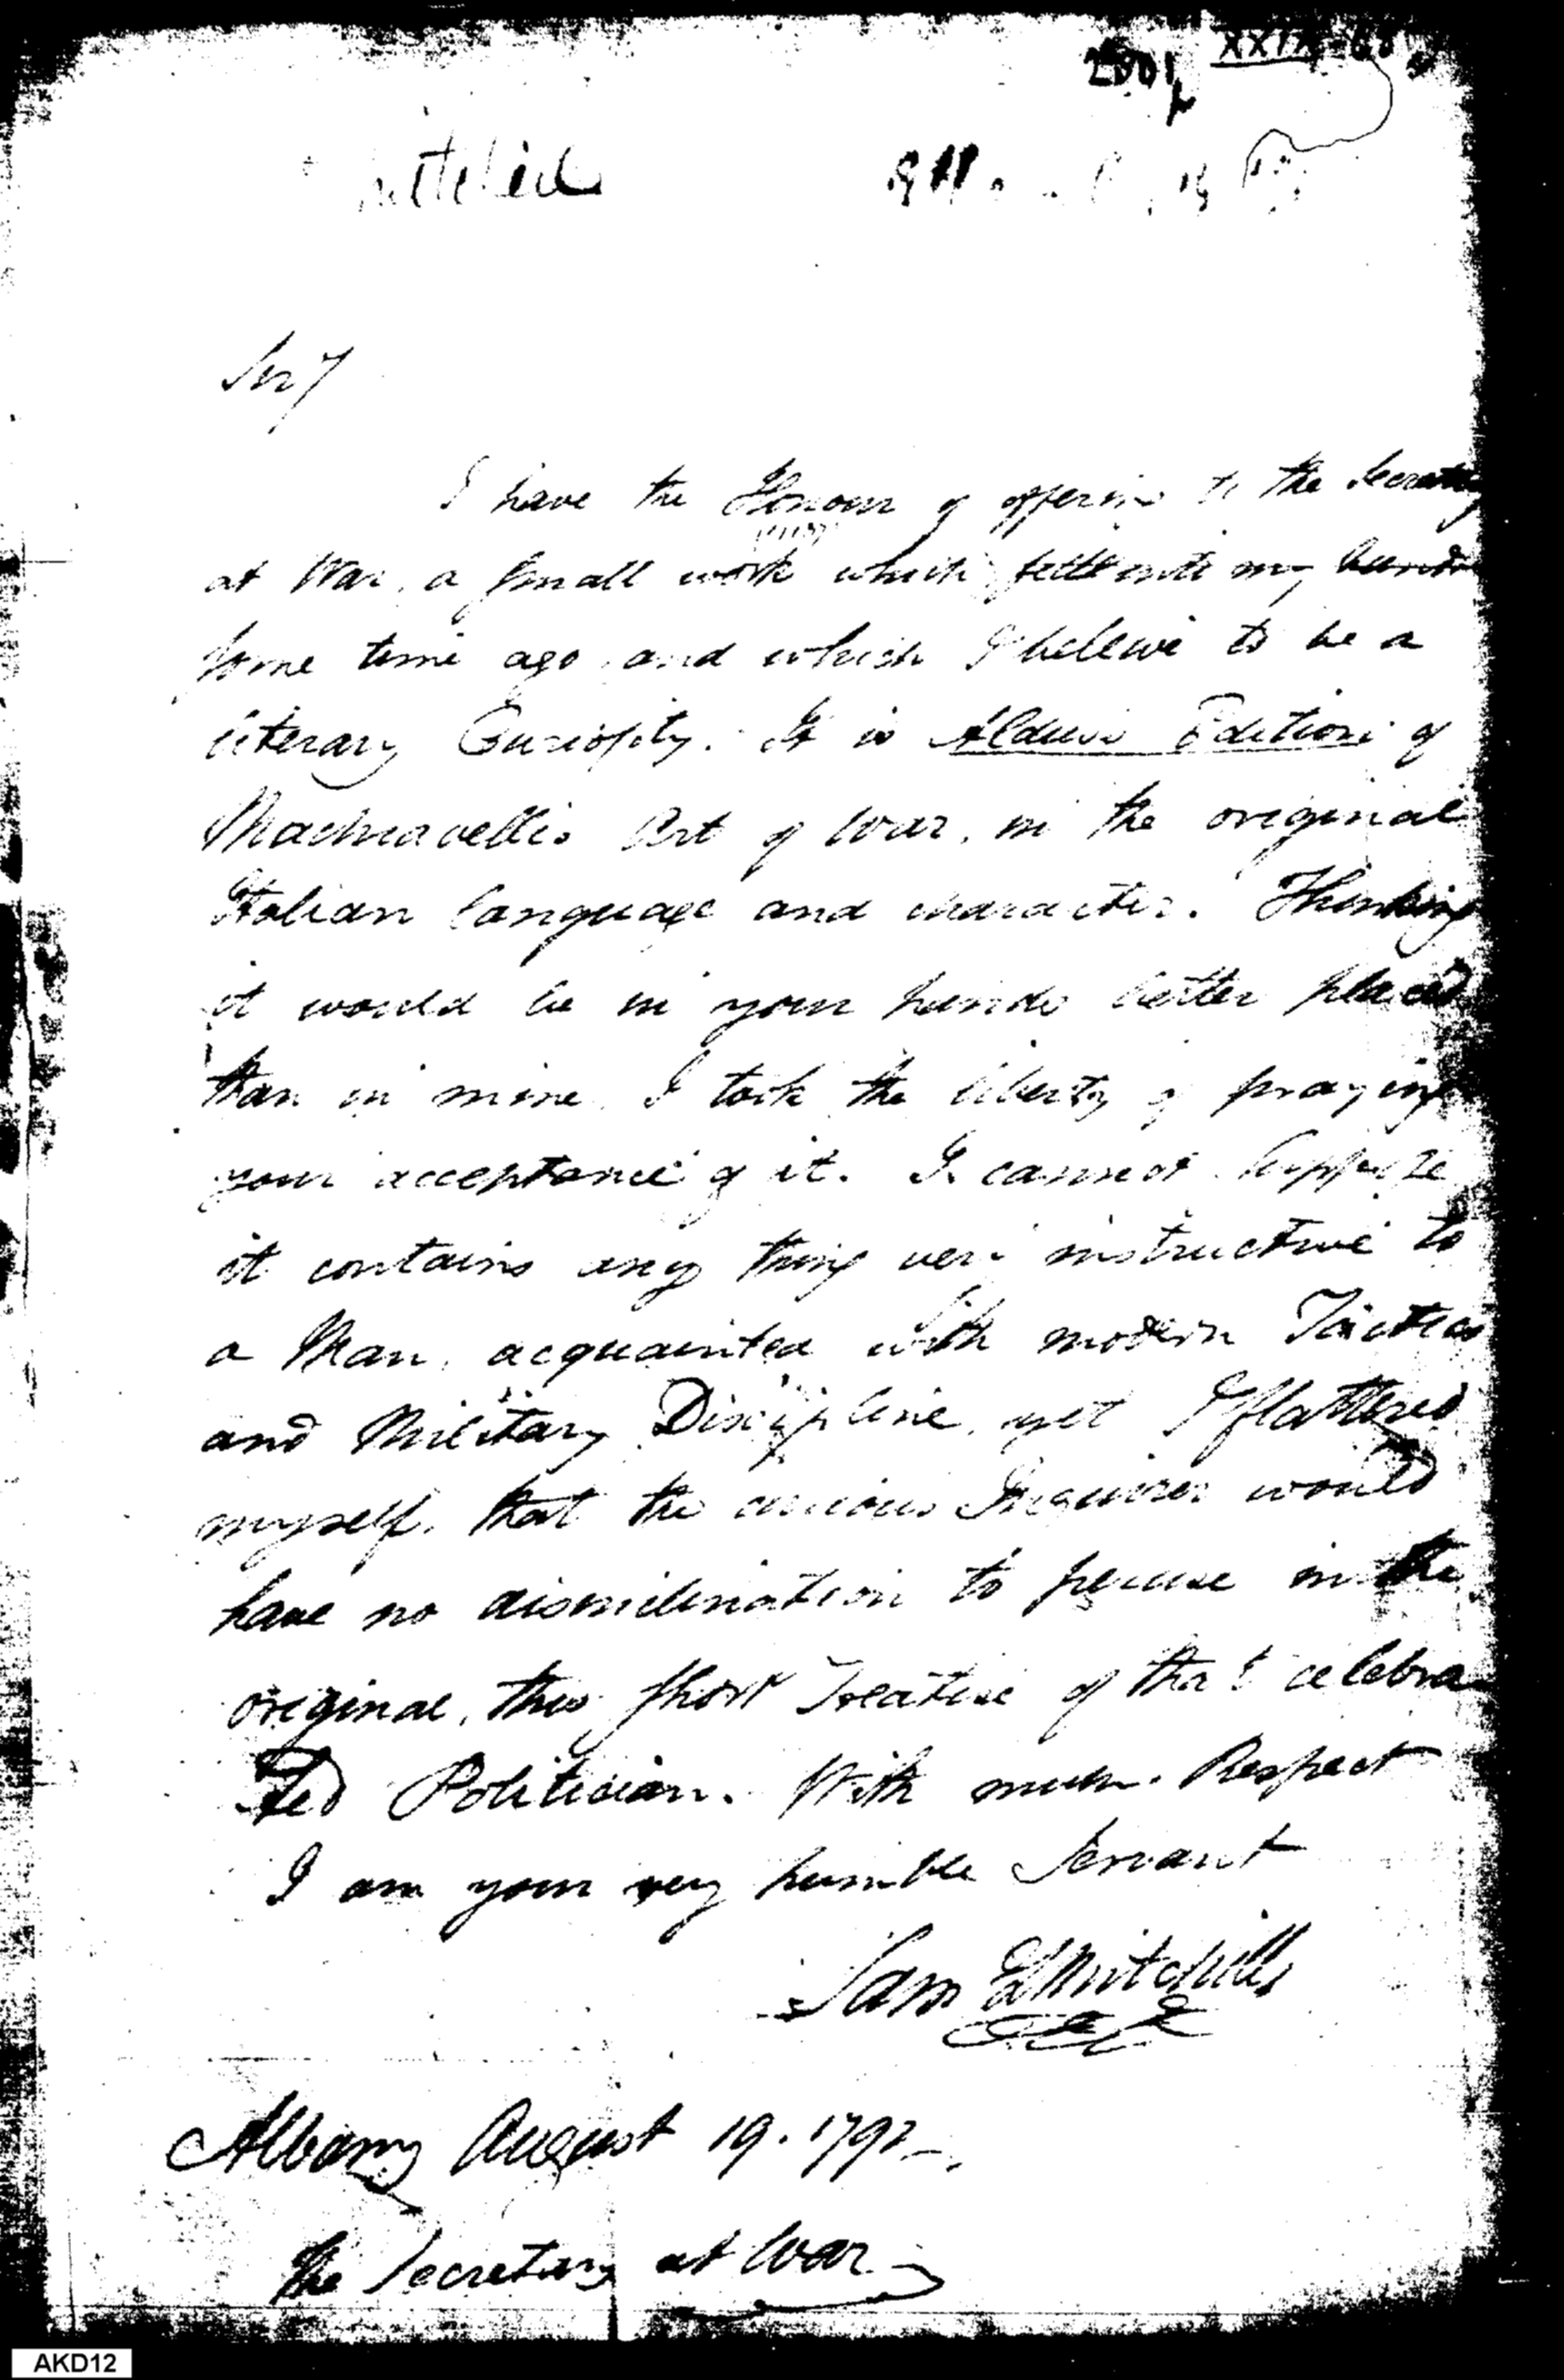 Sir
I have the Honour of offering to the Secretary
at War, a small work which fell into my hands
some time ago, and which I beleive to be a
literary Curiosity. It is Aldus's Edition of
Machiavelli's Art of War, in the original
Italian language and character. Thinking
it would be in your hands better placed
than in mine, I took the liberty of praying
your acceptance of it. I cannot suppose
it contains any thing very instructive to
a Man, acquainted with modern Tactics
and Military Discipline, yet I flattered
myself, that the curious Inquirer would
have no disinclination to peruse in the
original, this short Treatise of that celebra
ted Politician. With much Respect
I am your very humble Servant
Sam L Mitchill
Albany August 19. 1792
The Secretary at War
AKD12